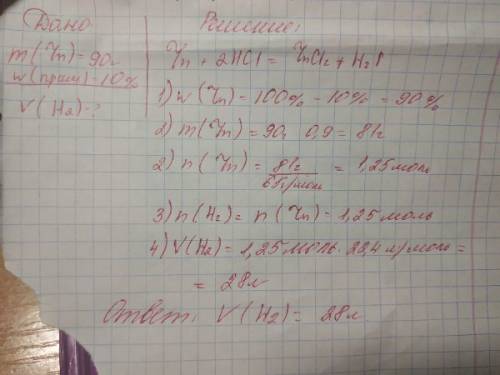 Дано
Решение:
m(Zn) = 90г
w(прим) = 10%
V(H₂) - ?
Zn + 2HCl = ZnCl₂ + H₂↑
1) w(Zn) = 100% - 10% = 90%
2) m(Zn) = 90 · 0,9 = 81г
2) n(Zn) = 81г / 65г/моль = 1,25 моль
3) n(H₂) = n(Zn) = 1,25 моль
4) V(H₂) = 1,25 моль · 22,4 л/моль =
= 28л
Ответ: V(H₂) = 28л